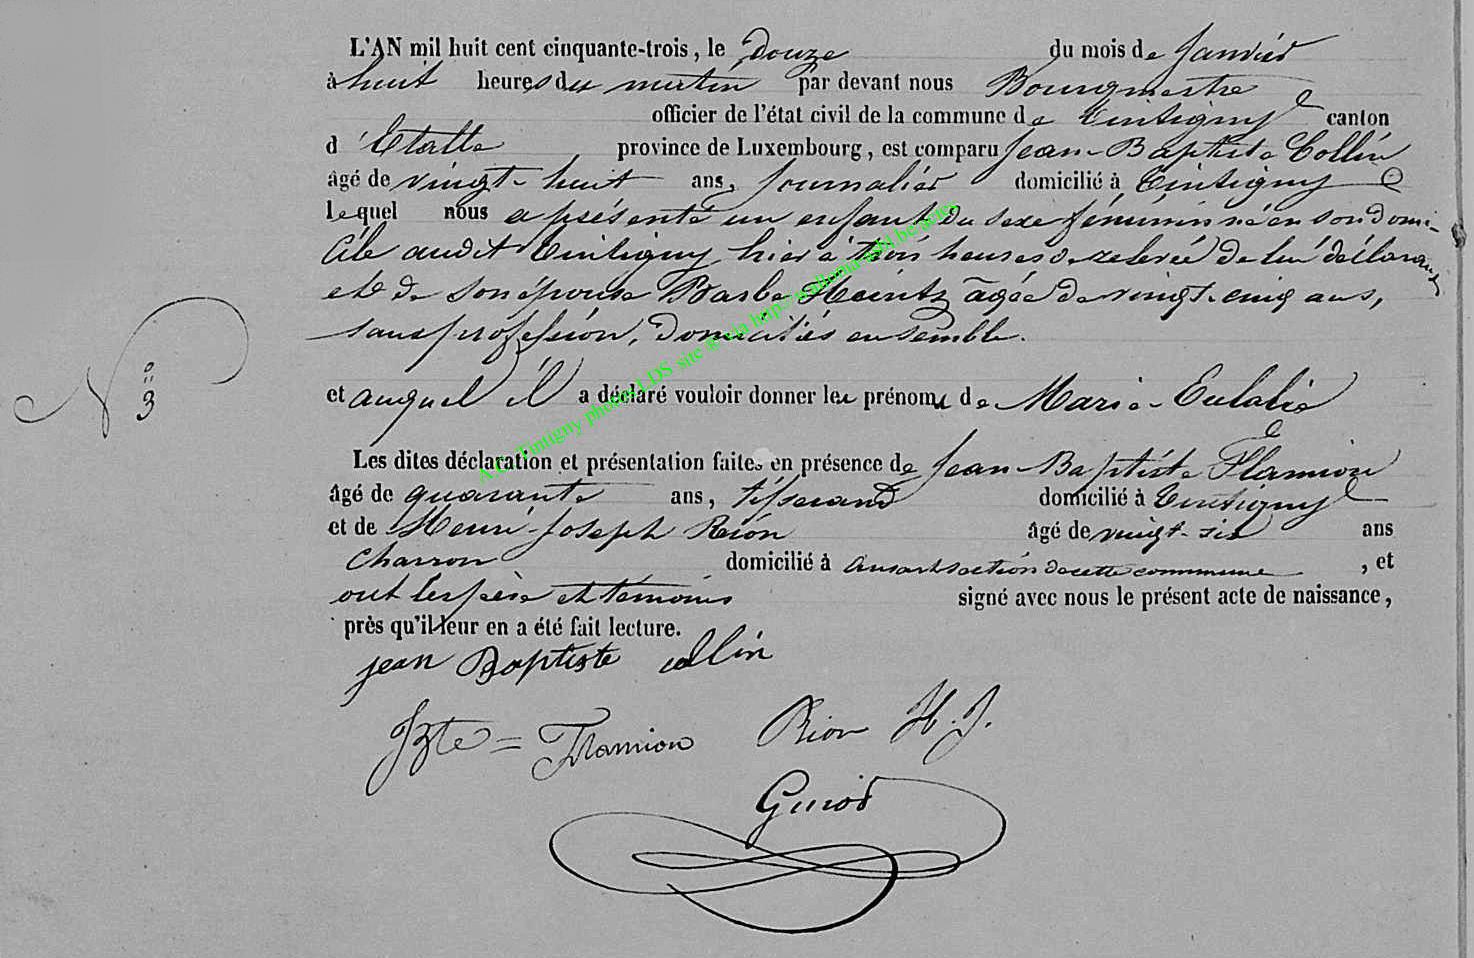 L'AN mil huit cent cinquante-trois, le Douze du mois de Janvier
à huit heures du matin par devant nous Bourgmestre
officier de l'état civil de la commune de Tintigny canton
d'Etalle province de Luxembourg, est comparu Jean-Baptiste Collin
âgé de vingt-huit ans, Journalier domicilié à Tintigny
lequel nous a présenté un enfant du sexe féminin né en son domi-
cile audit Tintigny, hier à trois heures de relevée de lui déclarant
et de son épouse Barbe Heintz âgée de vingt-cinq ans,
sans profession, domiciliés ensemble.
N° 3
et auquel il a déclaré vouloir donner les prénoms de Marie-Eulalie
Les dites déclaration et présentation faites en présence de Jean-Baptiste Flamion
âgé de quarante ans, tisserand domicilié à Tintigny
et de Henri-Joseph Rion âgé de vingt-six ans
Charron domicilié à Ansart section de cette commune, et
ont les père et témoins signé avec nous le présent acte de naissance,
près qu'il leur en a été fait lecture.
jean Baptiste collin
JBte = Flamion Rion H. J.
A.C. Tintigny photos LDS site @ via http://wallonia-asbl.be/actes